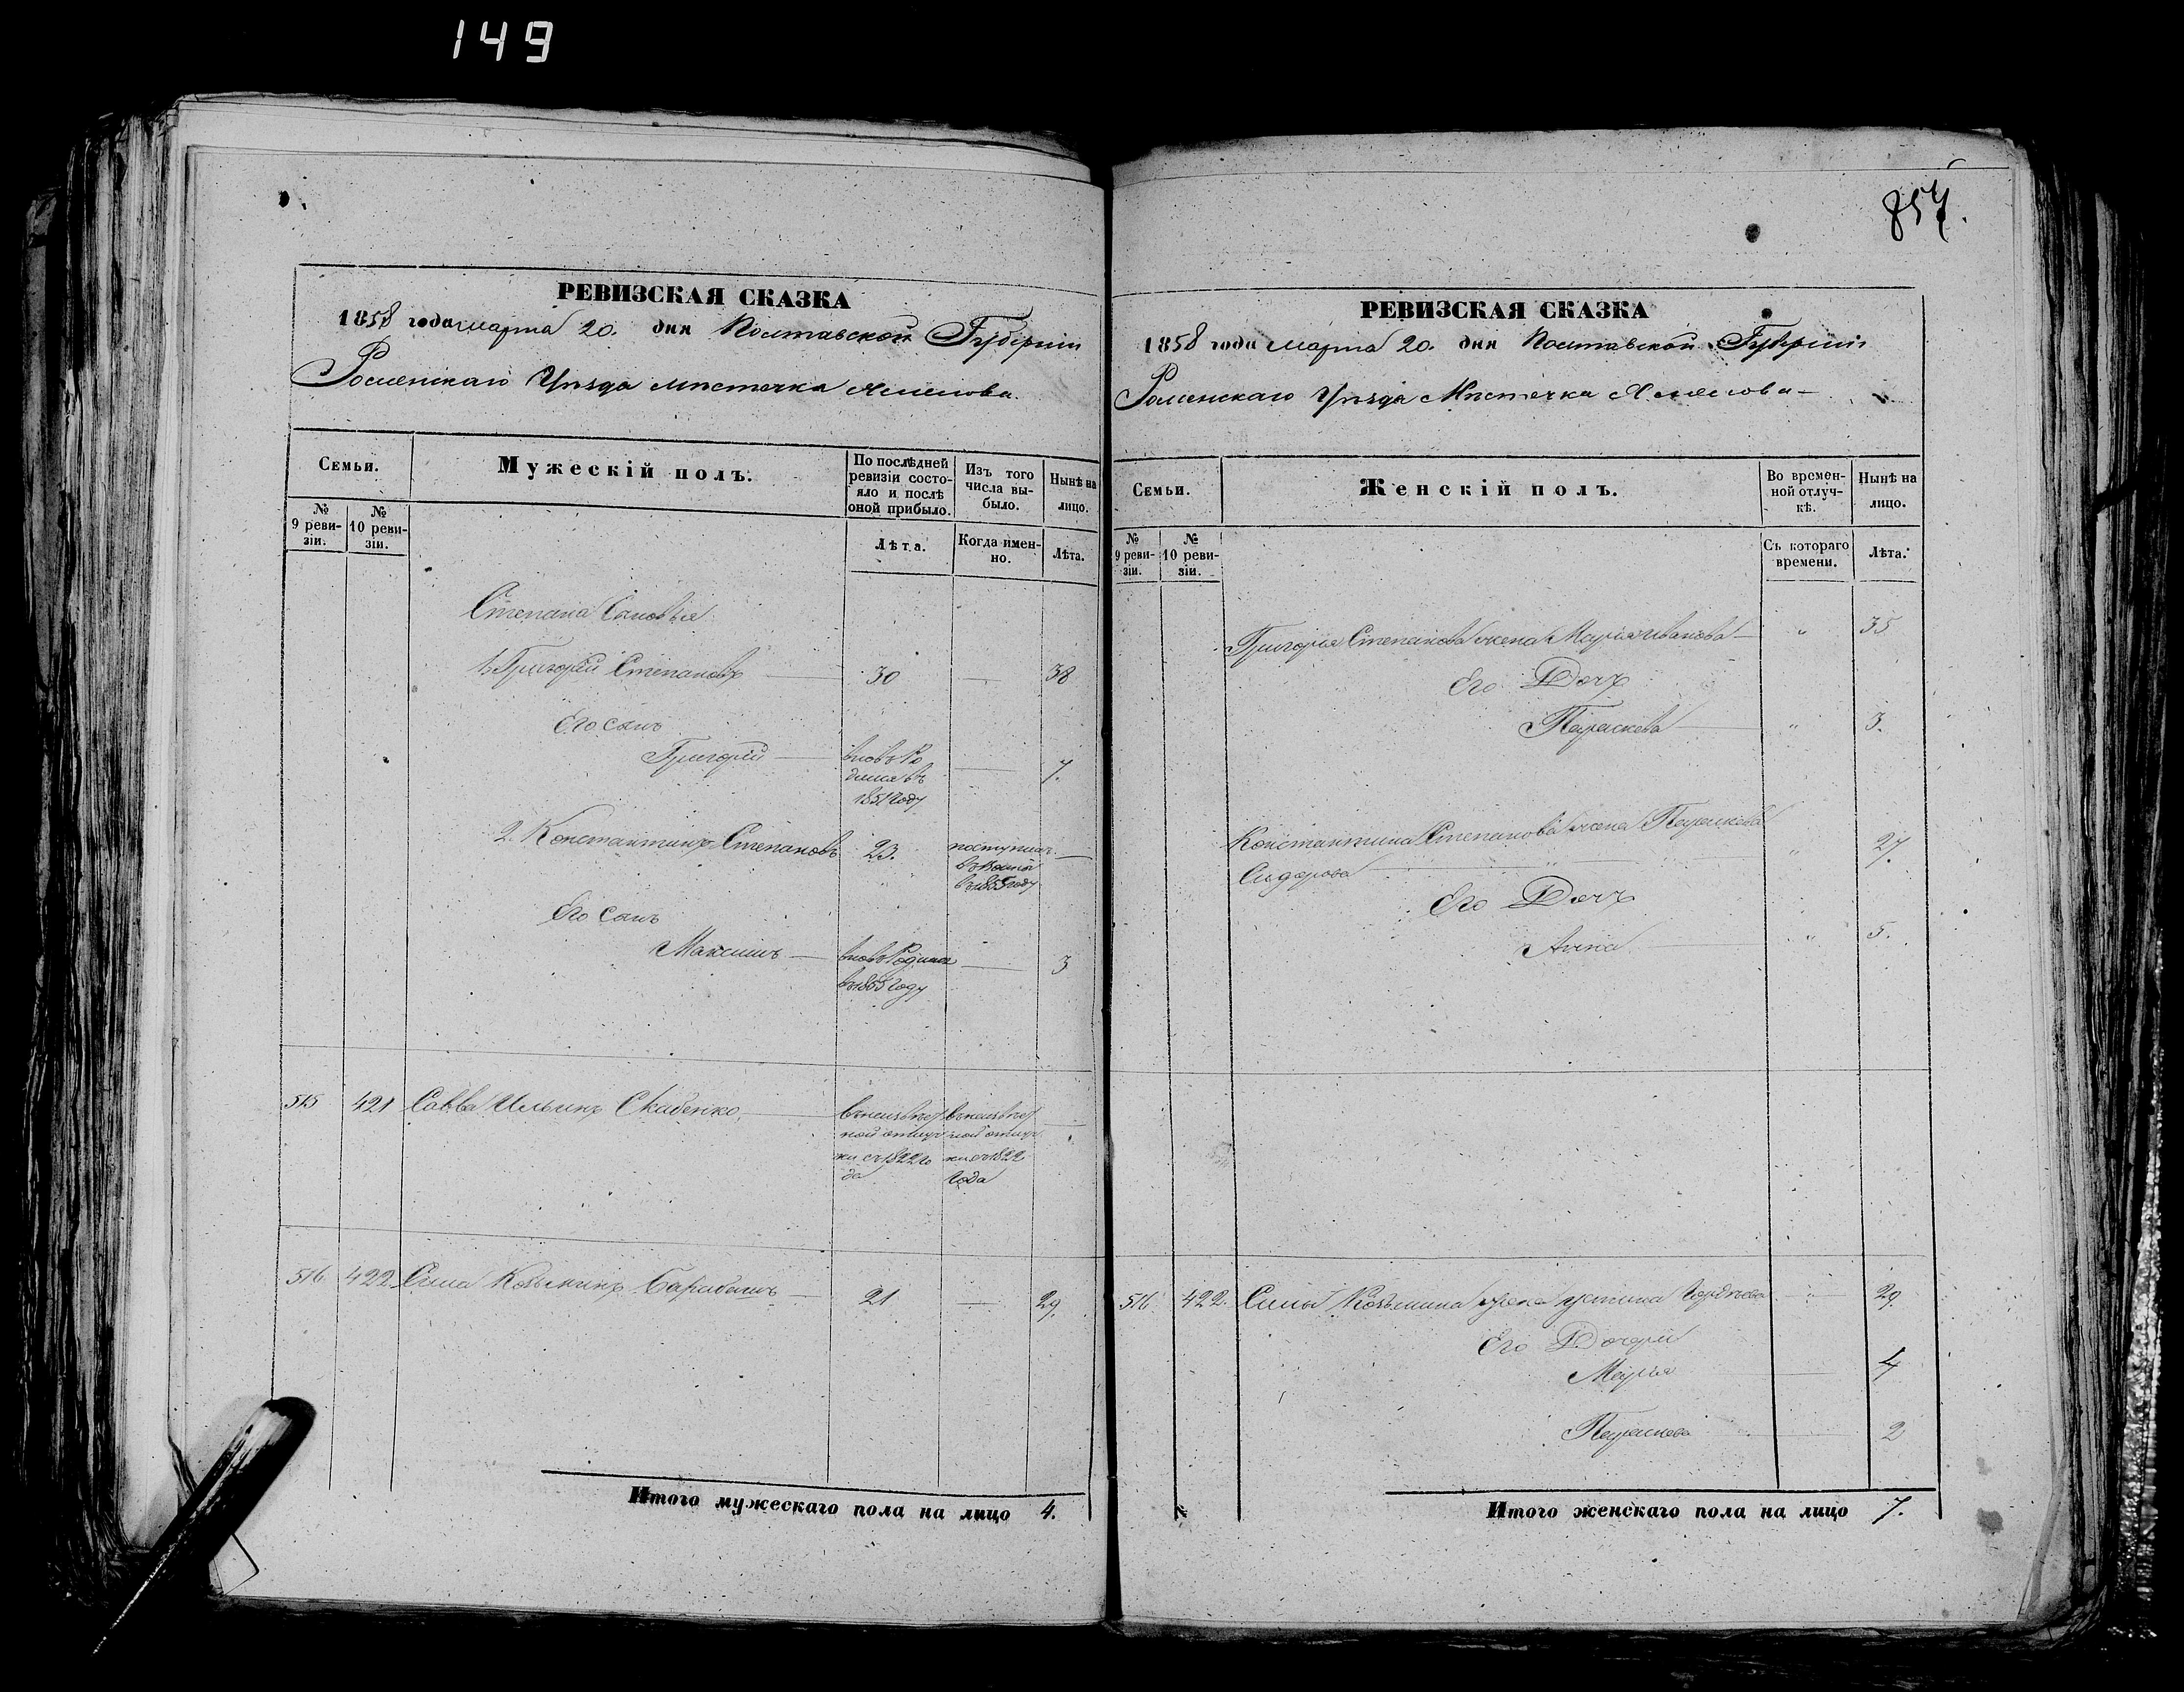 149
РЕВИЗСКАЯ СКАЗКА
1858 года марта 20. дня Полтавской Губерніи
Роменскаго Уѣзда мѣстечка
Семьи.
Мужескій полъ.
По послѣдней ревизіи состо-
яло и послѣ
оной прибыло.
Изъ того
числа вы-
было.
Нынѣ на
лицо.
№
9 реви-
зіи.
№
10 реви-
зіи.
Лѣта.
Когда имен-
но.
Лѣта.
Степана Сыновья
1. Григорій Степановъ — 30 — 38
Его сынъ
Григорій — вновь Ро
дился въ
1851 году — 7.
2. Константинъ Степановъ 23. поступилъ
въ 1855 году —
Его сынъ
Максимъ — вновь Родился
въ 1855 году — 3
515 421 Савва Ильинъ
въ неизвѣст
ной отлуч
ки съ 1822 го
да
въ неизвѣст
ной отлуч
ки съ 1822
года
516 422 Сила Козьминъ — 21 — 29.
Итого мужескаго пола на лицо 4.
857.
РЕВИЗСКАЯ СКАЗКА
1858 года марта 20. дня Полтавской Губерніи
Роменскаго Уѣзда Мѣстечка
Семьи.
Женскій полъ.
Во времен-
ной отлуч-
кѣ.
Нынѣ на
лицо.
№
9 реви-
зіи.
№
10 реви-
зіи.
Съ котораго
времени.
Лѣта.
Григорія Степанова жена Марія Иванова — " 35
Его Дочь
Параскева — " 3.
Константина Степанова жена Параскева
Сидорова — " 27.
Его Дочь
Анна — " 5.
516. 422. Силы Козьмина жена Устина Гордѣева — " 29.
Его Дочери
Марія — 4
Параскева — 2
Итого женскаго пола на лицо 7.